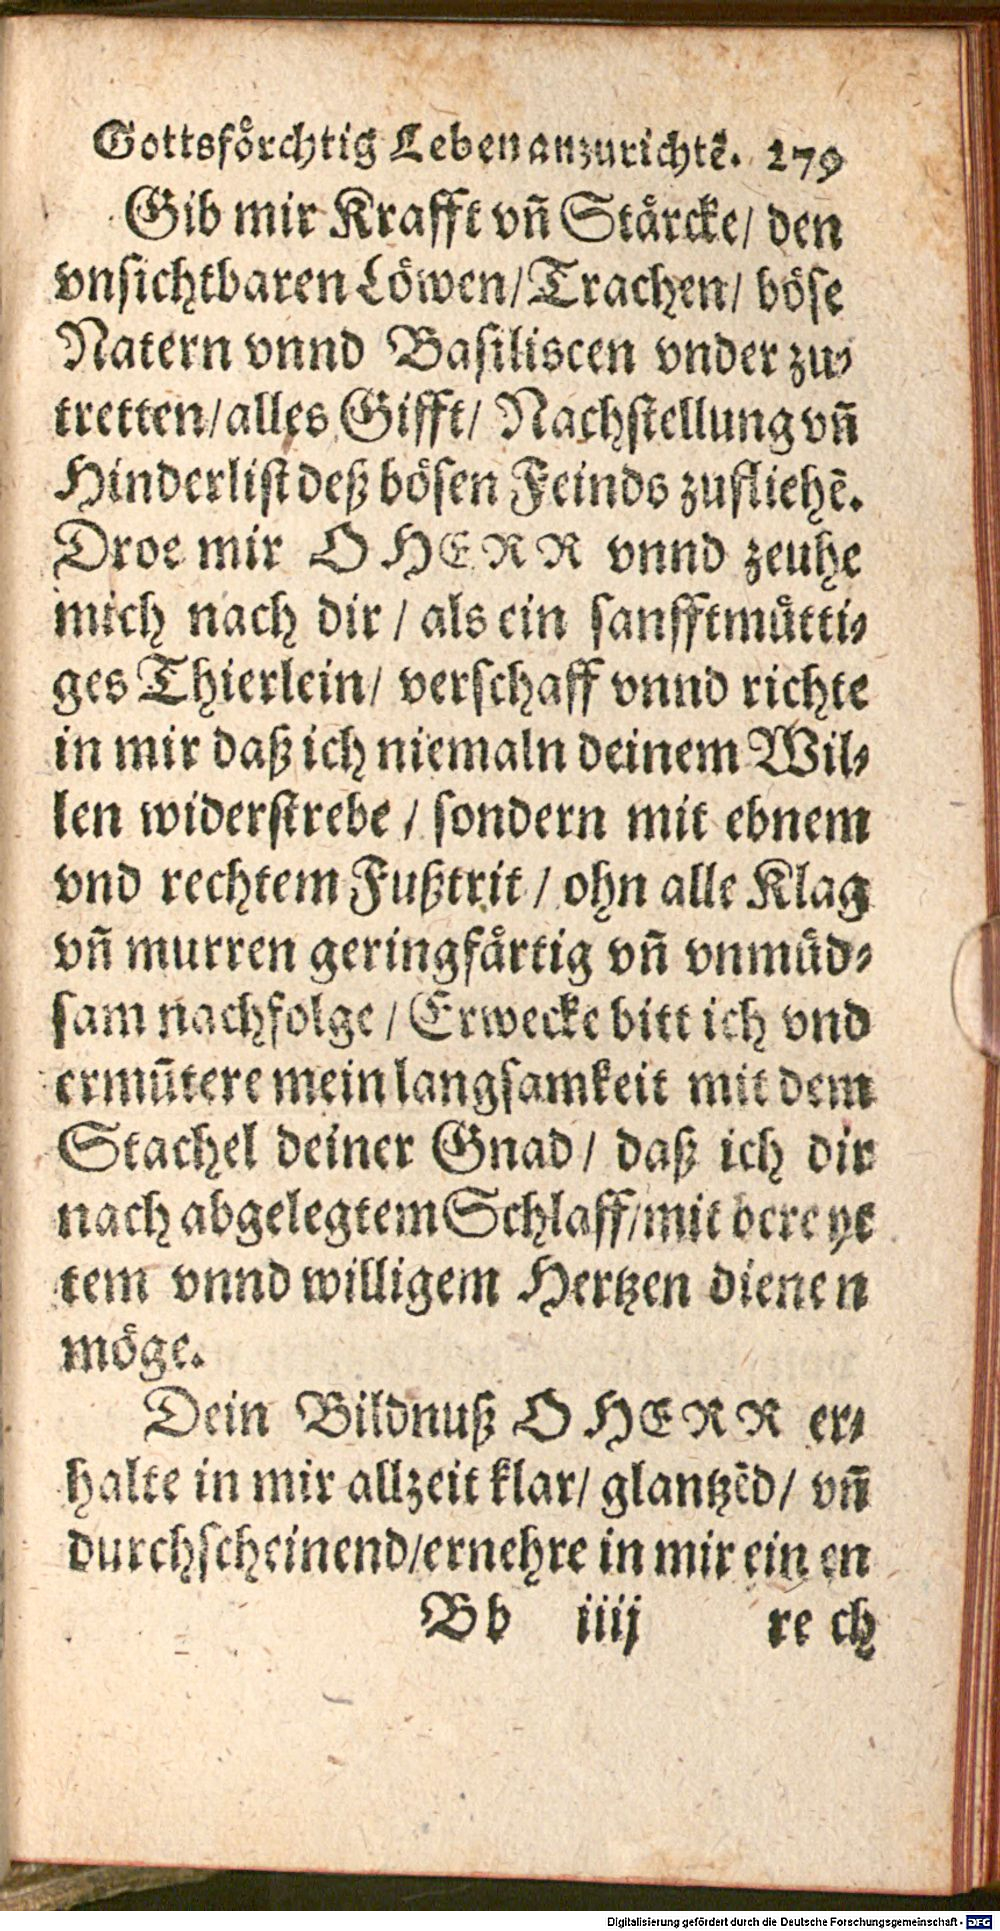 Gottsförchtig Leben anzurichtẽ. 279
Gib mir Krafft vñ Stärcke/ den
vnsichtbaren Löwen/ Trachen/ böse
Natern vnnd Basiliscen vnder zu-
tretten/ alles Gifft/ Nachstellung vñ
Hinderlist deß bösen Feinds zufliehẽ.
Droe mir O HERR vnnd zeuhe
mich nach dir / als ein sanfftmütti-
ges Thierlein/ verschaff vnnd richte
in mir daß ich niemaln deinem Wil-
len widerstrebe / sondern mit ebnem
vnd rechtem Fußtrit / ohn alle Klag
vñ murren geringfärtig vñ vnmüd-
sam nachfolge / Erwecke bitt ich vnd
ermũtere mein langsamkeit mit dem
Stachel deiner Gnad/ daß ich dir
nach abgelegtem Schlaff/ mit bereyt
tem vnnd willigem Hertzen dienen
möge.
Dein Bildnuß O HERR er-
halte in mir allzeit klar/ glantzẽd/ vñ
durchscheinend/ ernehre in mir ein en
Bb iiij re ch
Digitalisierung gefördert durch die Deutsche Forschungsgemeinschaft - DFG